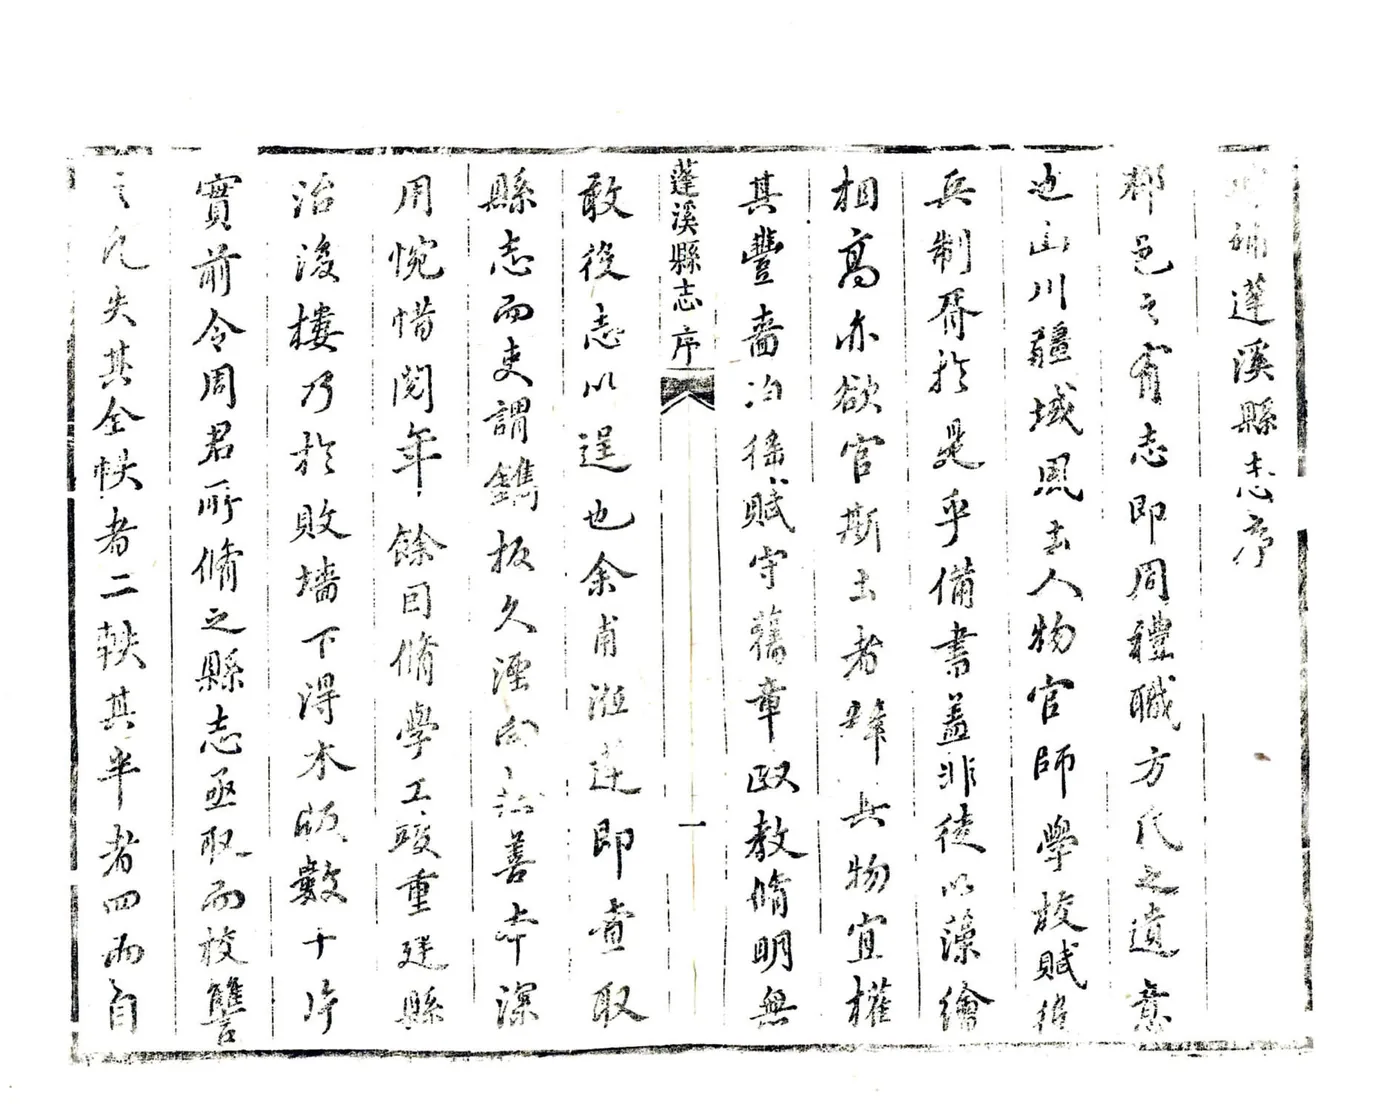 補蓬溪縣志序
郡邑之有志即周禮職方氏之遺意
也山川疆域風土人物官師學校賦役
兵制胥於是乎備書蓋非徒以藻繪
相高亦欲官斯土者辨其物宜權
其豐嗇均徭賦守舊章政教脩明無
蓬溪縣志序
一
敢役志以逞也余甫涖蓬即查取
縣志而吏謂鐫板久湮向無善本深
用惋惜閱年餘因脩學工竣重建縣
治後樓乃於敗墻下得木版數十片
實前令周君所脩之縣志亟取而校讐
之凡失其全帙者二軼其半者四而自